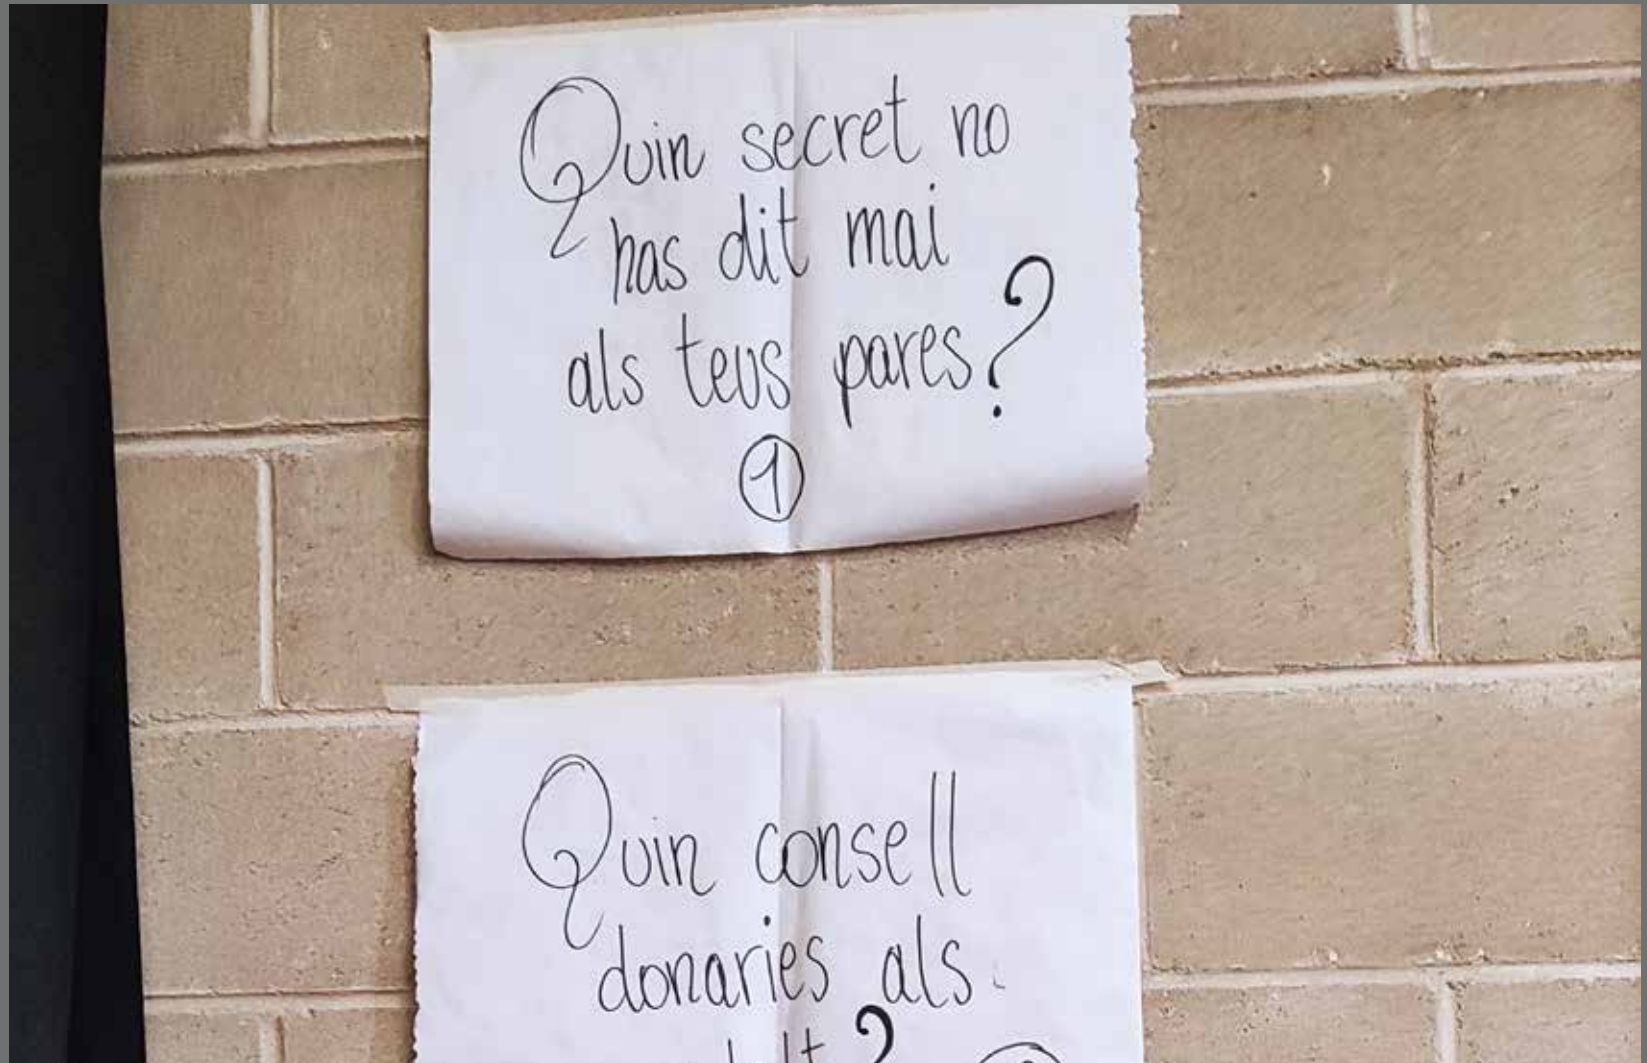 Quin secret no
has dit mai
als teus pares?
1
Quin consell
donaries als
?